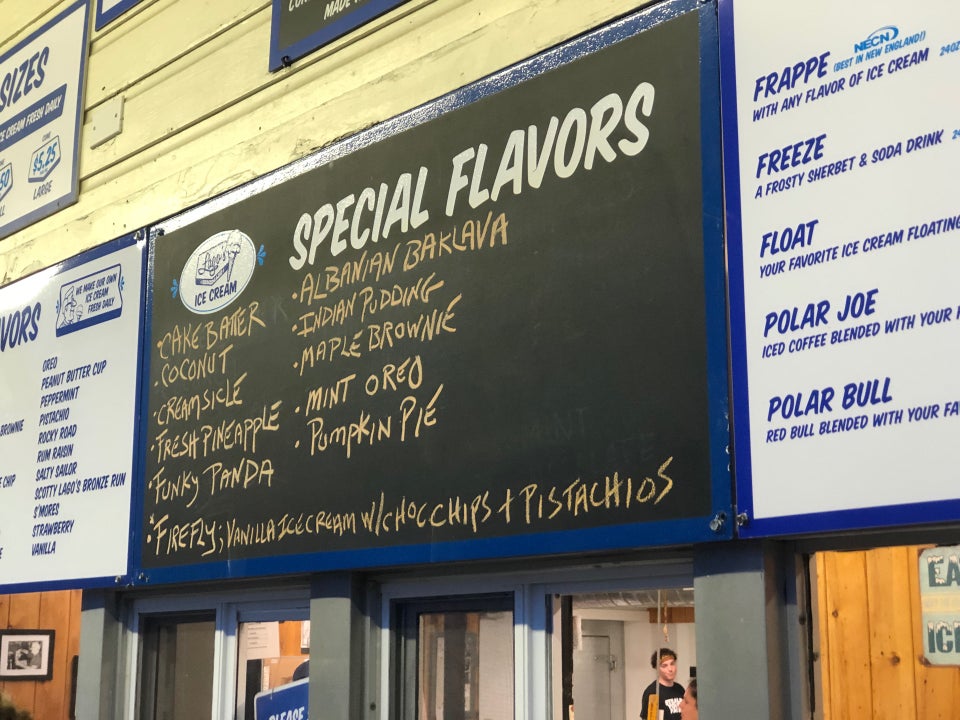 MADE
SIZES
ICE CREAM FRESH DAILY
$5.25
LARGE
WE MAKE OUR OWN
ICE CREAM
FRESH DAILY
OREO
PEANUT BUTTER CUP
PEPPERMINT
PISTACHIO
BROWNIE
ROCKY ROAD
RUM RAISIN
SALTY SAILOR
CHIP
SCOTTY LAGO'S BRONZE RUN
S'MORES
STRAWBERRY
VANILLA
SPECIAL FLAVORS
Lago's
ICE CREAM
·CAKE BATTER
·COCONUT
·CREAMSICLE
·FRESH PINEAPPLE
·FUNKY PANDA
·ALBANIAN BAKLAVA
·INDIAN PUDDING
·MAPLE BROWNIE
·MINT OREO
·PUMPKIN PIE
·FIREFLY; VANILLA ICE CREAM W/ CHOC CHIPS + PISTACHIOS
FRAPPE NECN (BEST IN NEW ENGLAND!) 24OZ
WITH ANY FLAVOR OF ICE CREAM
FREEZE
A FROSTY SHERBET & SODA DRINK
FLOAT
YOUR FAVORITE ICE CREAM FLOATING
POLAR JOE
ICED COFFEE BLENDED WITH YOUR
POLAR BULL
RED BULL BLENDED WITH YOUR
PLEASE